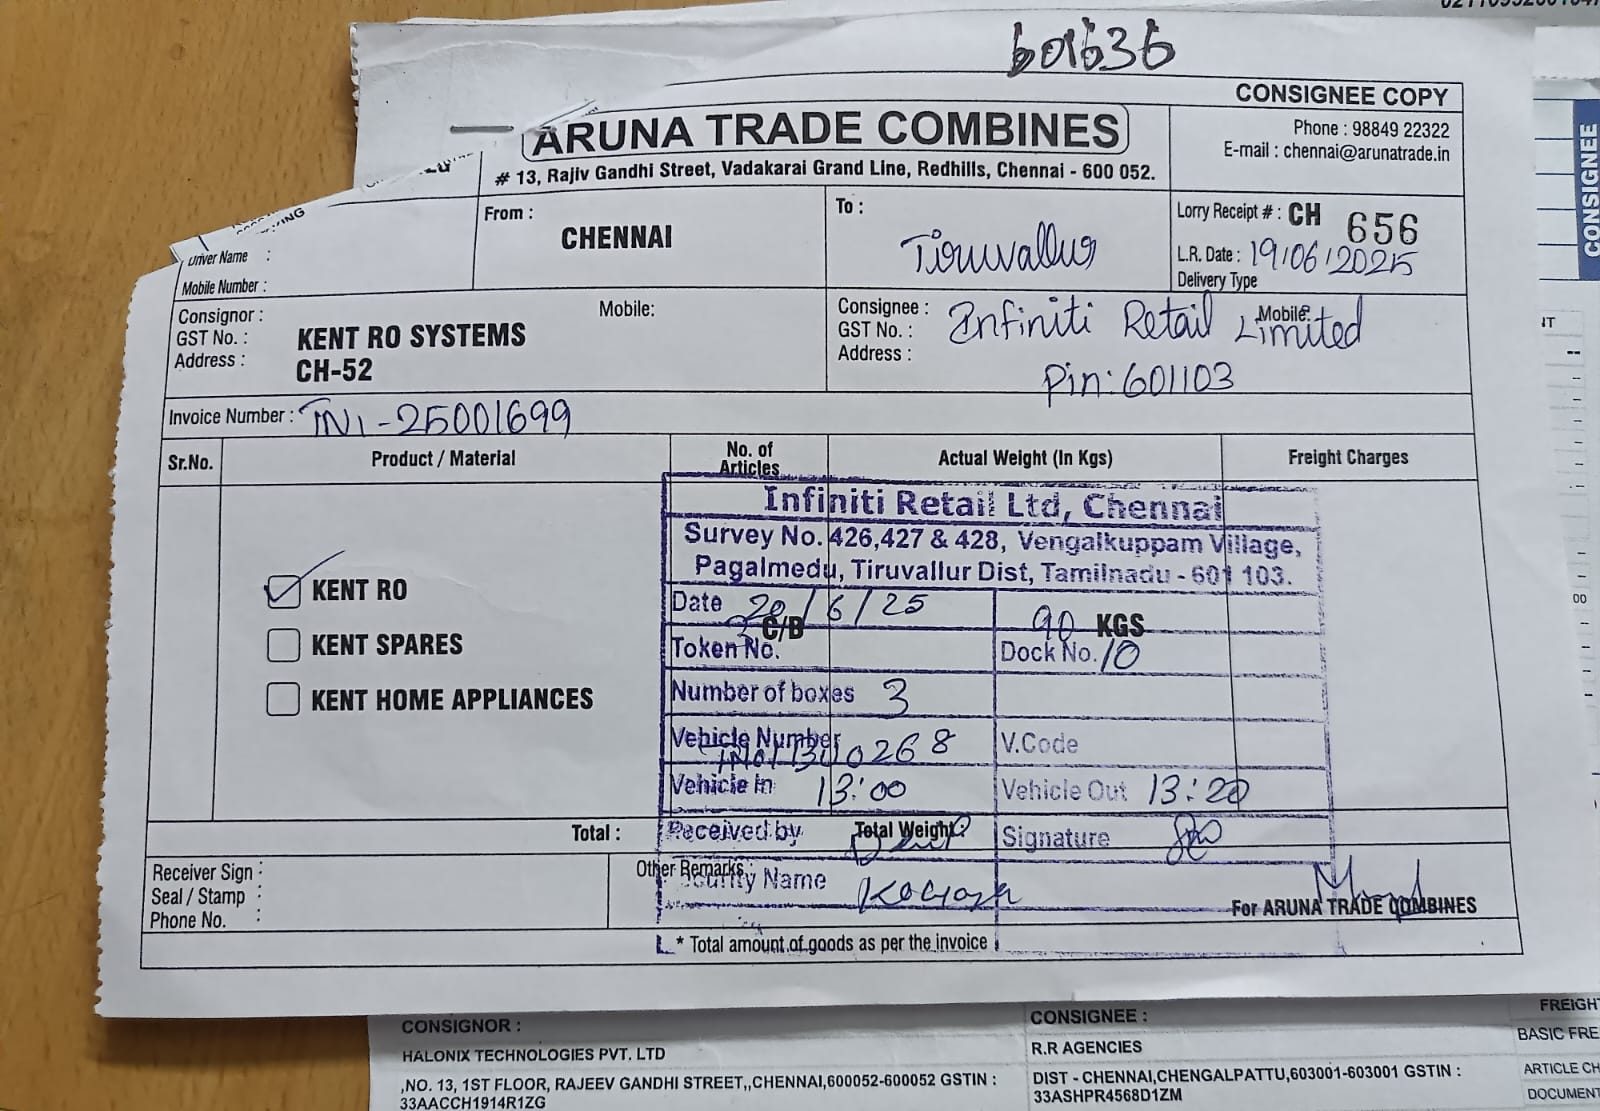 601636
CONSIGNEE COPY
ARUNA TRADE COMBINES
# 13, Rajiv Gandhi Street, Vadakarai Grand Line, Redhills, Chennai - 600 052.
Phone : 98849 22322
E-mail : chennai@arunatrade.in
Driver Name :
Mobile Number :
From :
CHENNAI
To :
Tiruvallur
Lorry Receipt # : CH 656
L.R. Date : 19/06/2025
Delivery Type
Consignor :
GST No. :
Address :
Mobile:
KENT RO SYSTEMS
CH-52
Consignee : Infiniti Retail Limited
Mobile:
GST No. :
Address :
Pin: 601103
Invoice Number : TN1-25001699
Sr.No.
Product / Material
No. of
Articles
Actual Weight (In Kgs)
Freight Charges
KENT RO
KENT SPARES
KENT HOME APPLIANCES
C/B
90 KGS
Infiniti Retail Ltd, Chennai
Survey No. 426,427 & 428, Vengalkuppam Village,
Pagalmedu, Tiruvallur Dist, Tamilnadu - 601 103.
Date 20/6/25
Token No.
Dock No. 10
Number of boxes 3
Vehicle Number
V.Code
Vehicle In 13:00
Vehicle Out 13:20
Received by
Signature
Security Name
Total :
Total Weight:
Receiver Sign :
Seal / Stamp :
Phone No. :
Other Remarks :
For ARUNA TRADE COMBINES
* Total amount of goods as per the invoice
CONSIGNEE
CONSIGNOR :
HALONIX TECHNOLOGIES PVT. LTD
,NO. 13, 1ST FLOOR, RAJEEV GANDHI STREET,,CHENNAI,600052-600052 GSTIN :
33AACCH1914R1ZG
CONSIGNEE :
R.R AGENCIES
DIST - CHENNAI,CHENGALPATTU,603001-603001 GSTIN :
33ASHPR4568D1ZM
BASIC FRE
ARTICLE CH
DOCUMENT